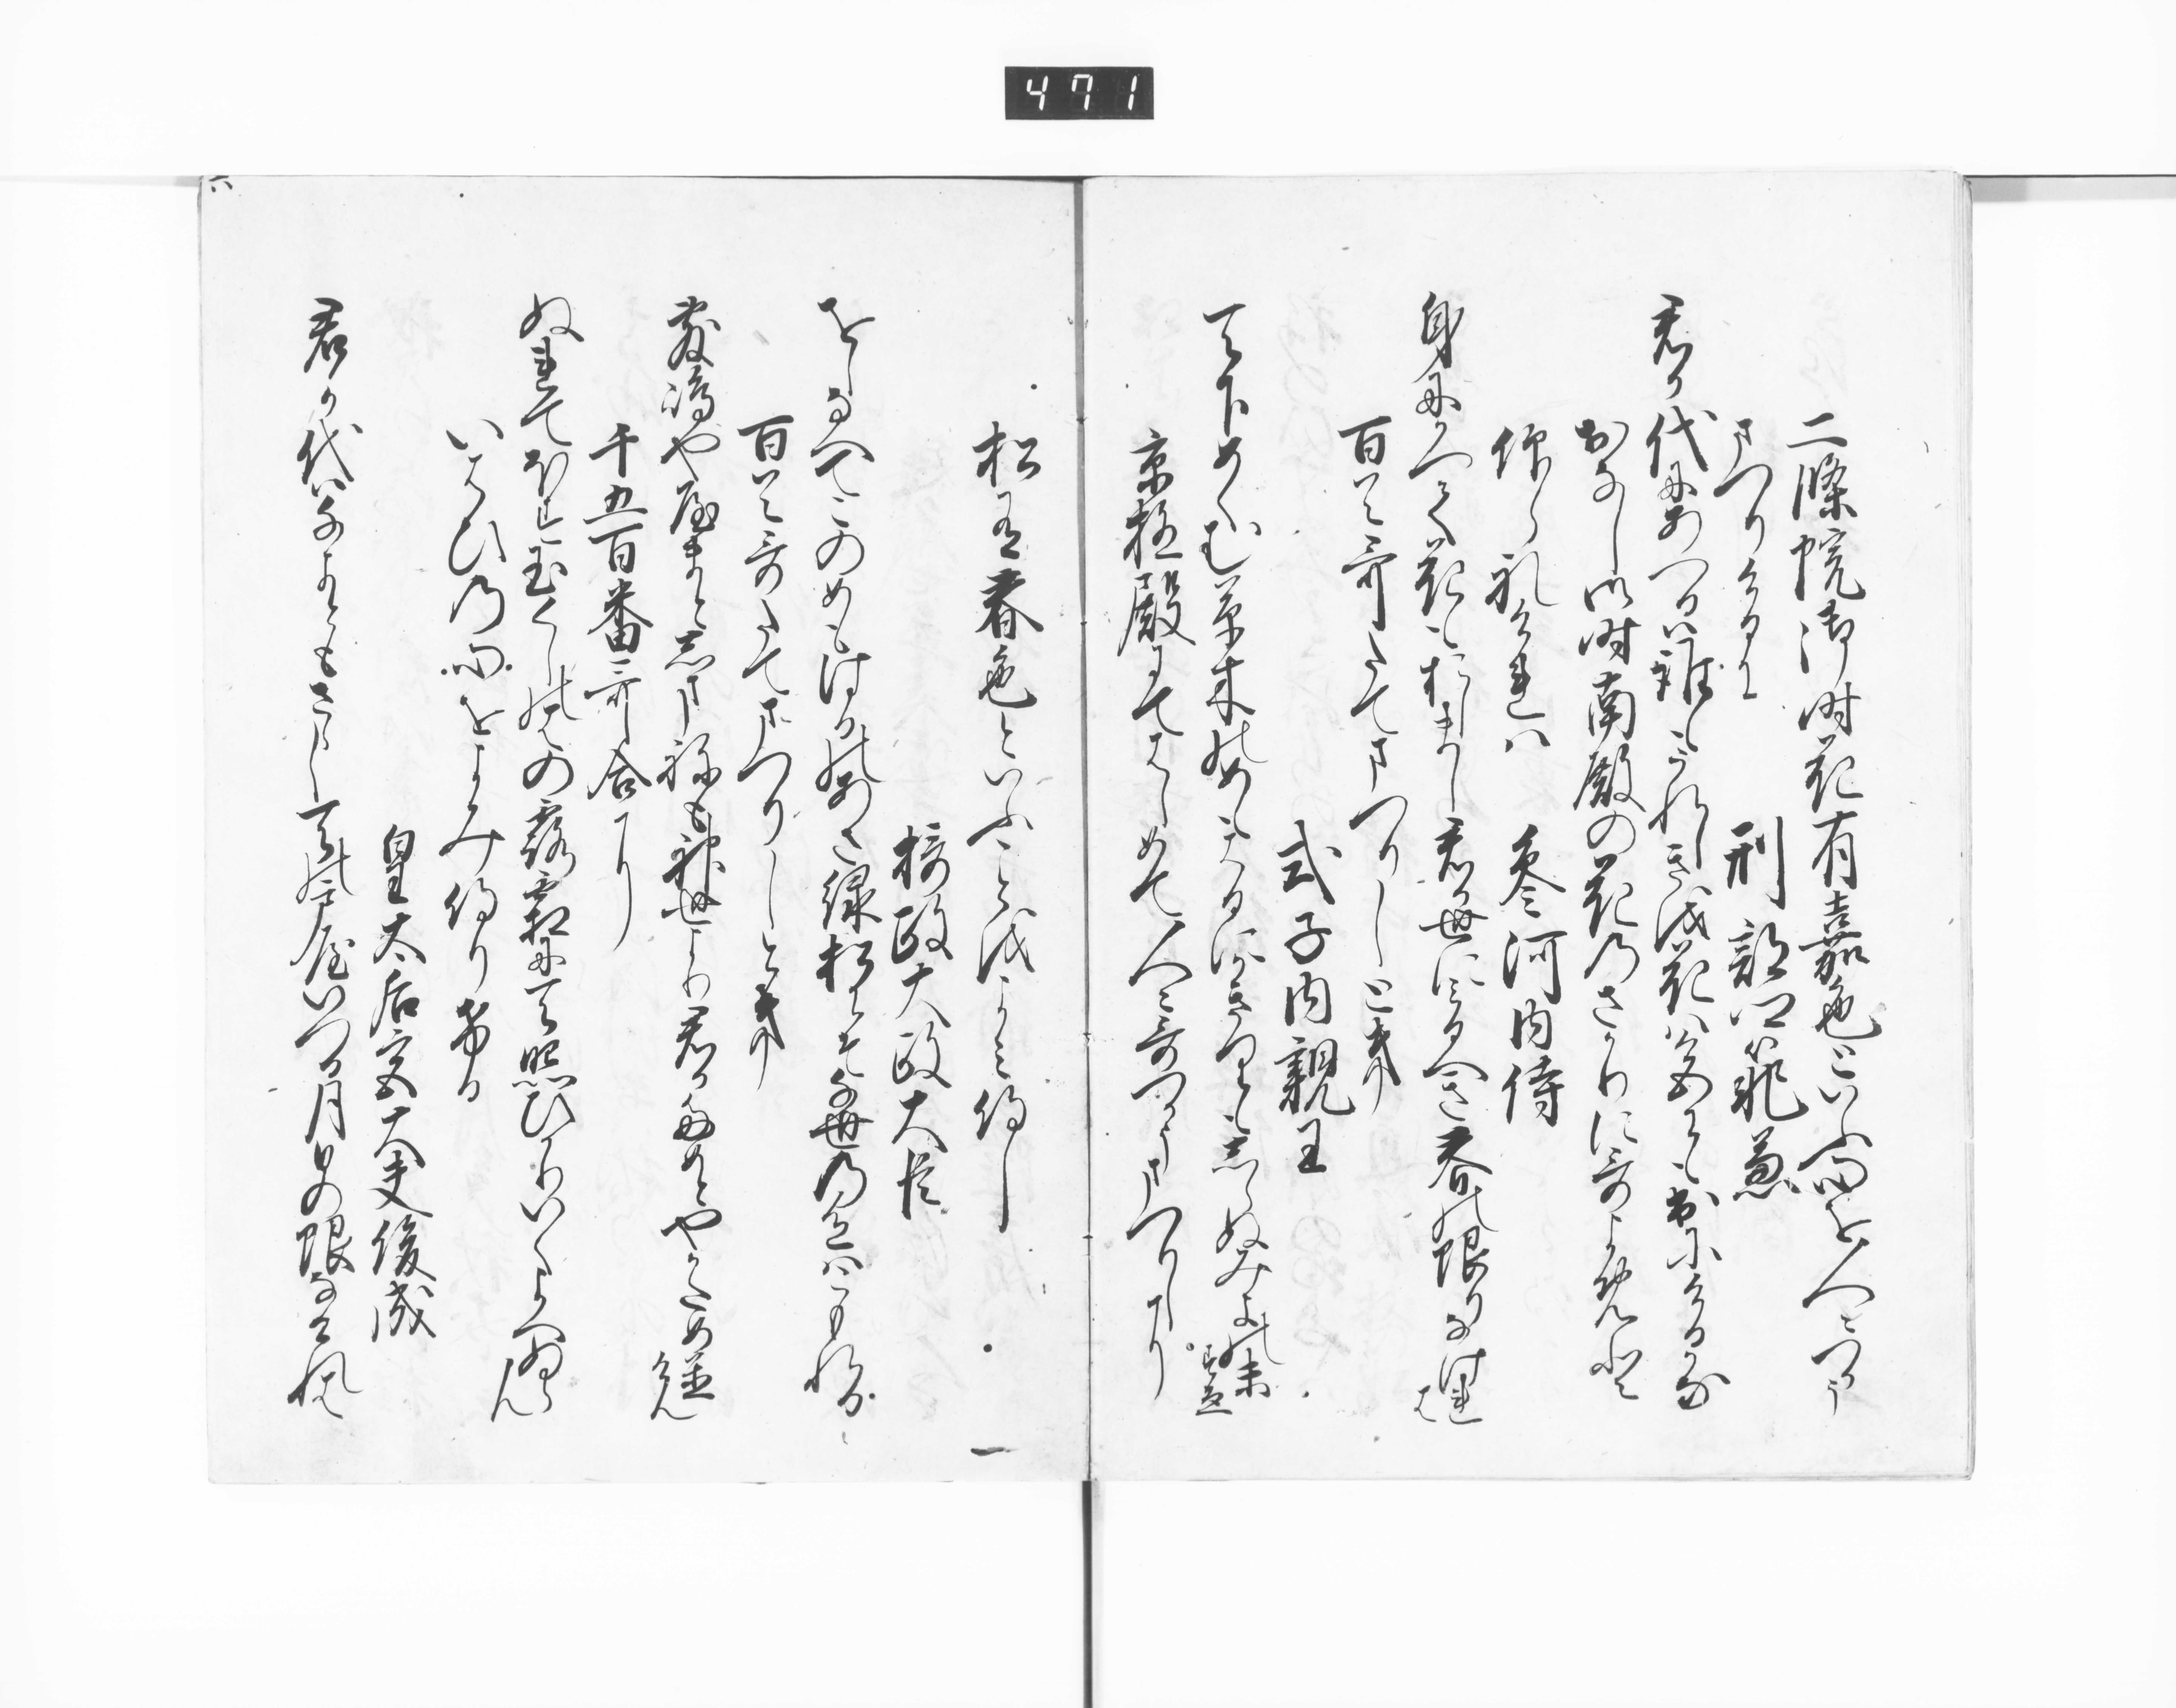 471
二條院御時花有嘉色といふ心を人〻つかう
まつりけるに
刑部卿範兼
君か代にあへるは誰もうれしきを花は色にも出にけるかな
おなし御時南殿の花のさかりに哥よめと
仰られけれは
参河内侍
身にかへて花もおしまし君か世にみるへき春の限なけれは
百首哥たてまつりしとき
式子内親王
天下めくむ草木のめも春にかきりもしらぬみよの末〻
京極殿にてはしめて人〻哥つかうまつりしに
松有春色といふことをよみ侍し
摂政太政大臣
をしなへてこのめも春の浅緑松にそ千世の色はこもれる
百首哥たてまつりしとき
敷嶋や屋まとしまねも神世より君かためとやかためをきけん
千五百番哥合に
ぬれてほす玉くしの葉の露霜に天照ひかりいく世へぬらん
いはひの心をよみ侍りける
皇太后宮大夫俊成
君か代は千世ともさゝし天の戸や出る月日の限なけれは
六